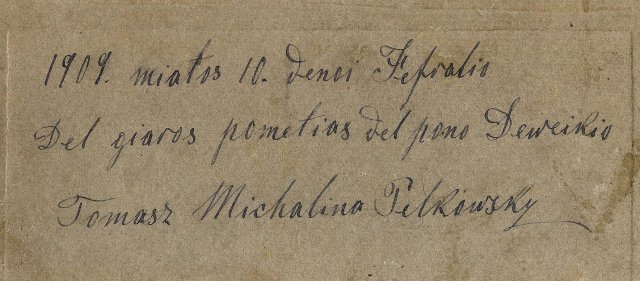 1909. miatos 10. denoi Fefralio
Del giaros pometias del pono Deweikio
Tomasz Michalina Pelkowsky